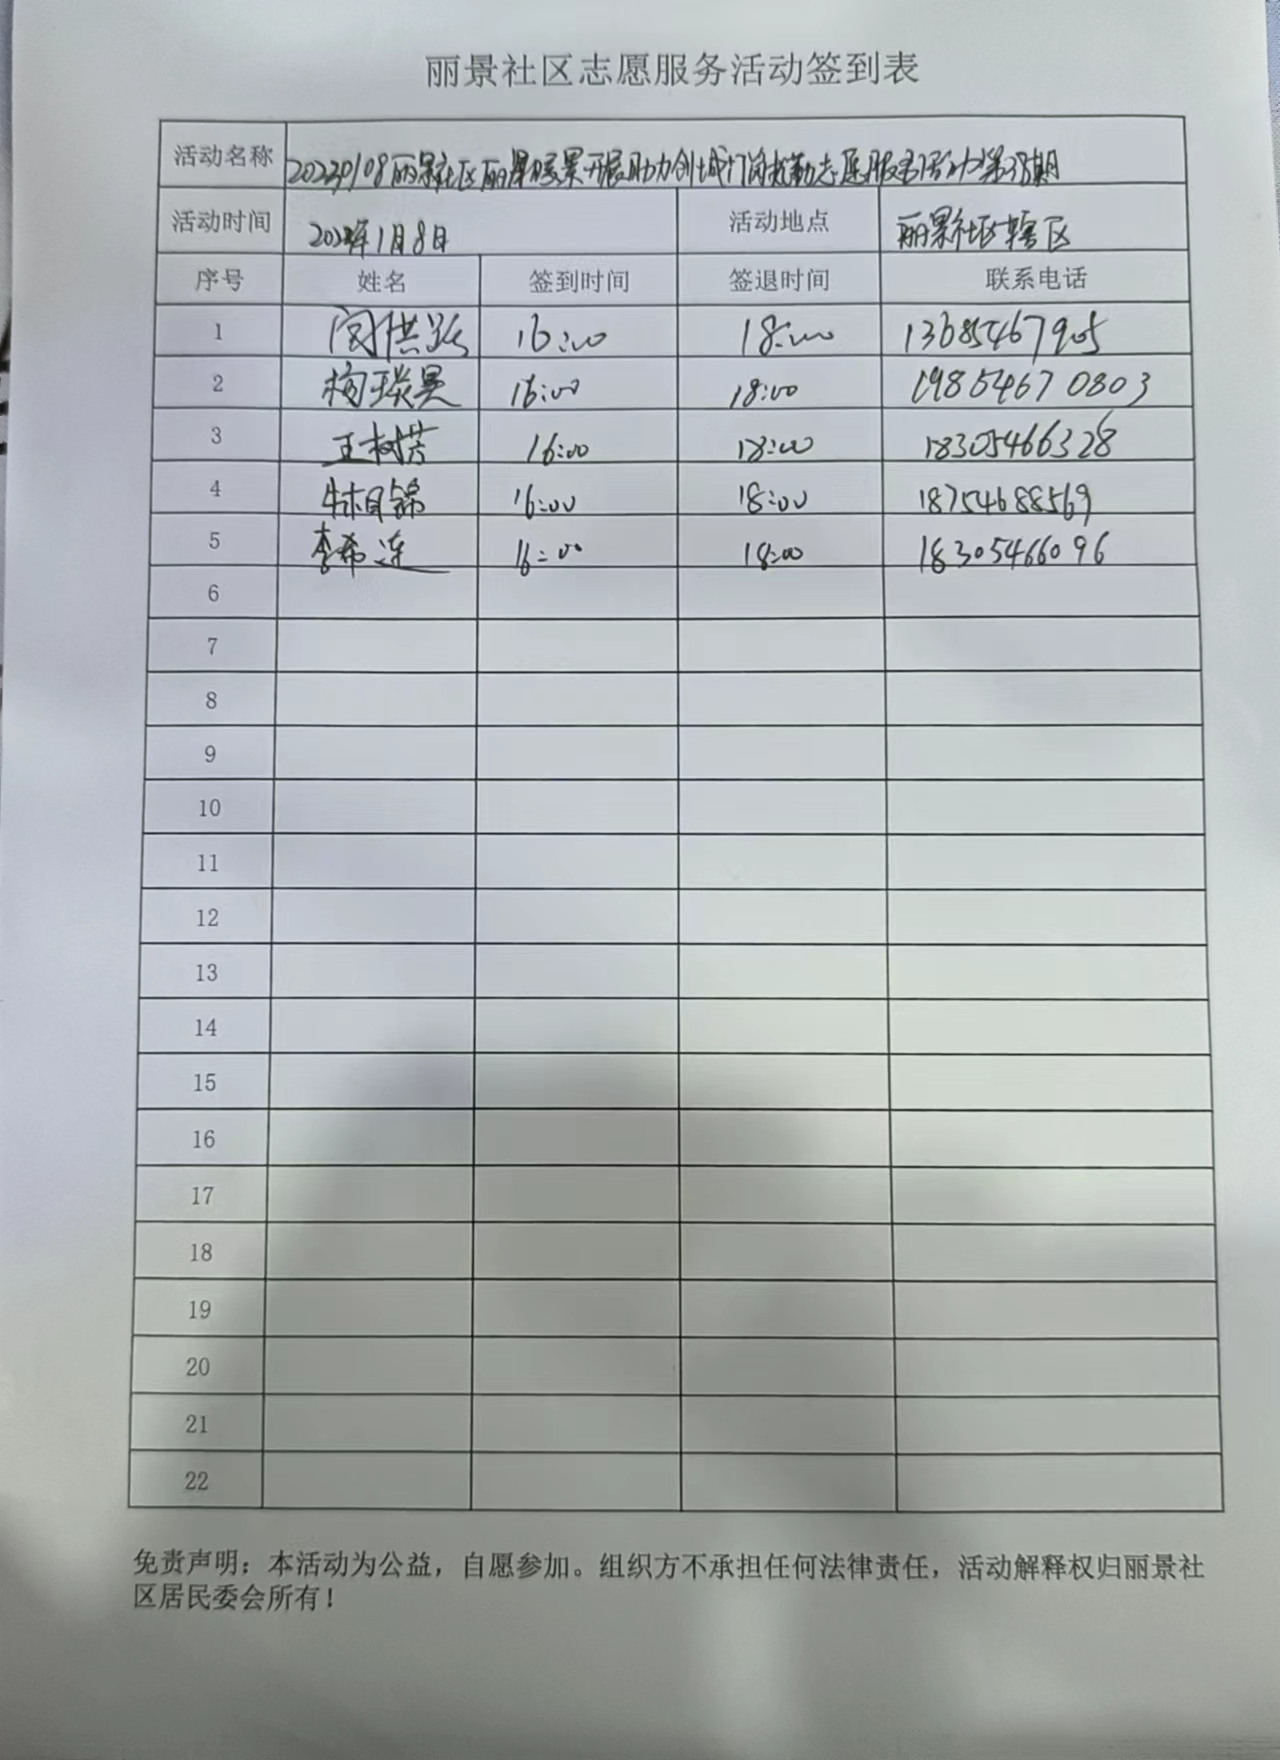 丽景社区志愿服务活动签到表
活动名称 20220108丽景社区丽景 景开展助力创城门岗执勤志愿服务活动第 期
活动时间 2022年1月8日 活动地点 丽景社区辖区
序号 姓名 签到时间 签退时间 联系电话
1 16:00 18:00 13685467905
2 16:00 18:00 19854670803
3 王树芳 16:00 18:00 18305466328
4 16:00 18:00 18754688569
5 李希连 16:00 18:00 18305466096
6
7
8
9
10
11
12
13
14
15
16
17
18
19
20
21
22
免责声明：本活动为公益，自愿参加。组织方不承担任何法律责任，活动解释权归丽景社
区居民委会所有！